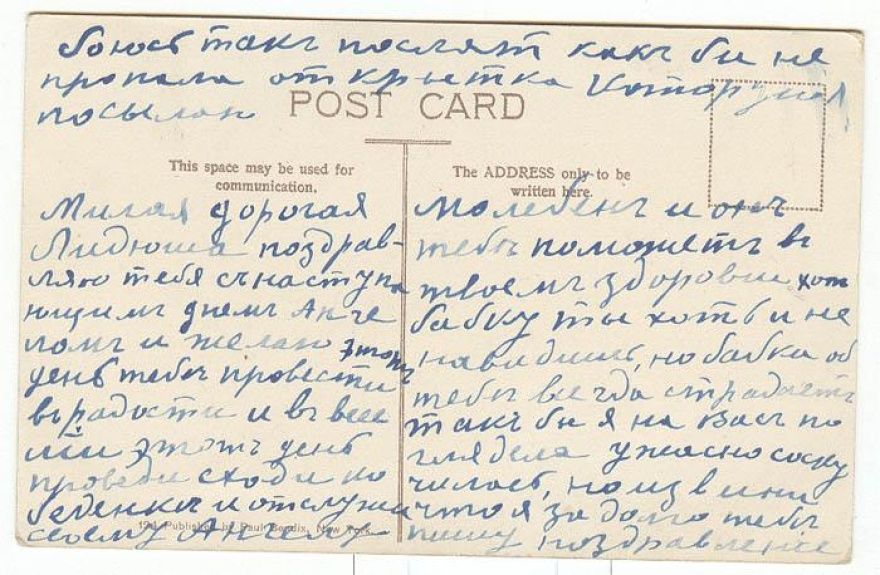 боюсь такъ послят какъ би не
пропала открытка Которую я
посылаю
POST CARD
This space may be used for
communication.
The ADDRESS only to be
written here.
Милая дорогая
Лидюша поздрав-
ляю тебя съ наступа
ющимъ днемъ Анге
ломъ и желаю этотъ
день тебѣ провести
въ радости и въ весе
лiи этотъ день
проведи сходи ко
беденкѣ и отслужи
своему Ангелу
194 Published by Paul Bendix, New York.
Молебенъ и онъ
тебѣ поможетъ въ
твоемъ здоровии хотъ
бабку ты хоть и не
навидишь, но бабка об
тебѣ всегда страдаетъ
такъ бы я на Васъ по
глядела ужасно соску
чилась, но извини
что я за долго тебѣ
пишу поздравление